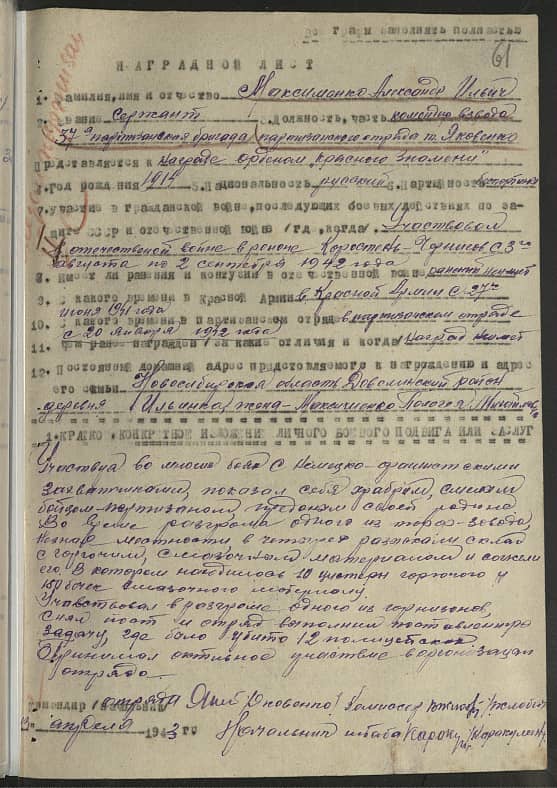 Все графы заполнять полностью
61
НАГРАДНОЙ ЛИСТ
1. Фамилия, имя и отчество Максименко Александр Ильич
2. Звание Сержант 3. Должность, часть командир взвода
37-а партизанская бригада партизанского отряда т. Яковенко
Представляется к награде орденом "Красного Знамени"
4. Год рождения 1914 5. Национальность русский 6. Партийность беспартийн
7. Участие в гражданской войне, последующих боевых действиях по за-
щите СССР и отечественной войне /где, когда/ Участвовал
в отечественной войне в районе Коростень - Чернигов с 3го
августа по 2 сентября 1942 года
8. Имеет ли ранения и контузии в отечественной войне ранений не имеет
9. С какого времени в Красной Армии в Красной Армии с 27го
июня 1941 года
10. С какого времени в партизанском отряде в партизанском отряде
с 20 января 1942 года
11. Чем ранее награжден /за какие отличия и когда/ Наград не имеет
12. Постоянный домашний адрес представляемого к награждению и адрес
его семьи Новосибирская область Доволинский район
деревня Ильинка жена - Максименко
1. КРАТКОЕ КОНКРЕТНОЕ ИЗЛОЖЕНИЕ ЛИЧНОГО БОЕВОГО ПОДВИГА ИЛИ ЗАСЛУГ
Участвуя во многих боях с немецко-фашистскими
захватчиками, показал себя храбрым, смелым
бойцом-партизаном, преданым своей родине.
Во время разгрома одного из торф-завода,
незная местности, в четырех разыскали склад
с горючим, смазочным материалом и сожгли
его. В котором находилось 10 цистерн горючого и
150 бочек смазочного материалу.
Учавствовал в разгроме одного из гарнизонов,
снял пост и отряд выполнил поставленную
задачу, где было убито 12 полицейских
Принимал активное участие в организации
отряда.
Командир отряда /Яковенко/ Комиссар
апреля 1943 го Начальник штаба